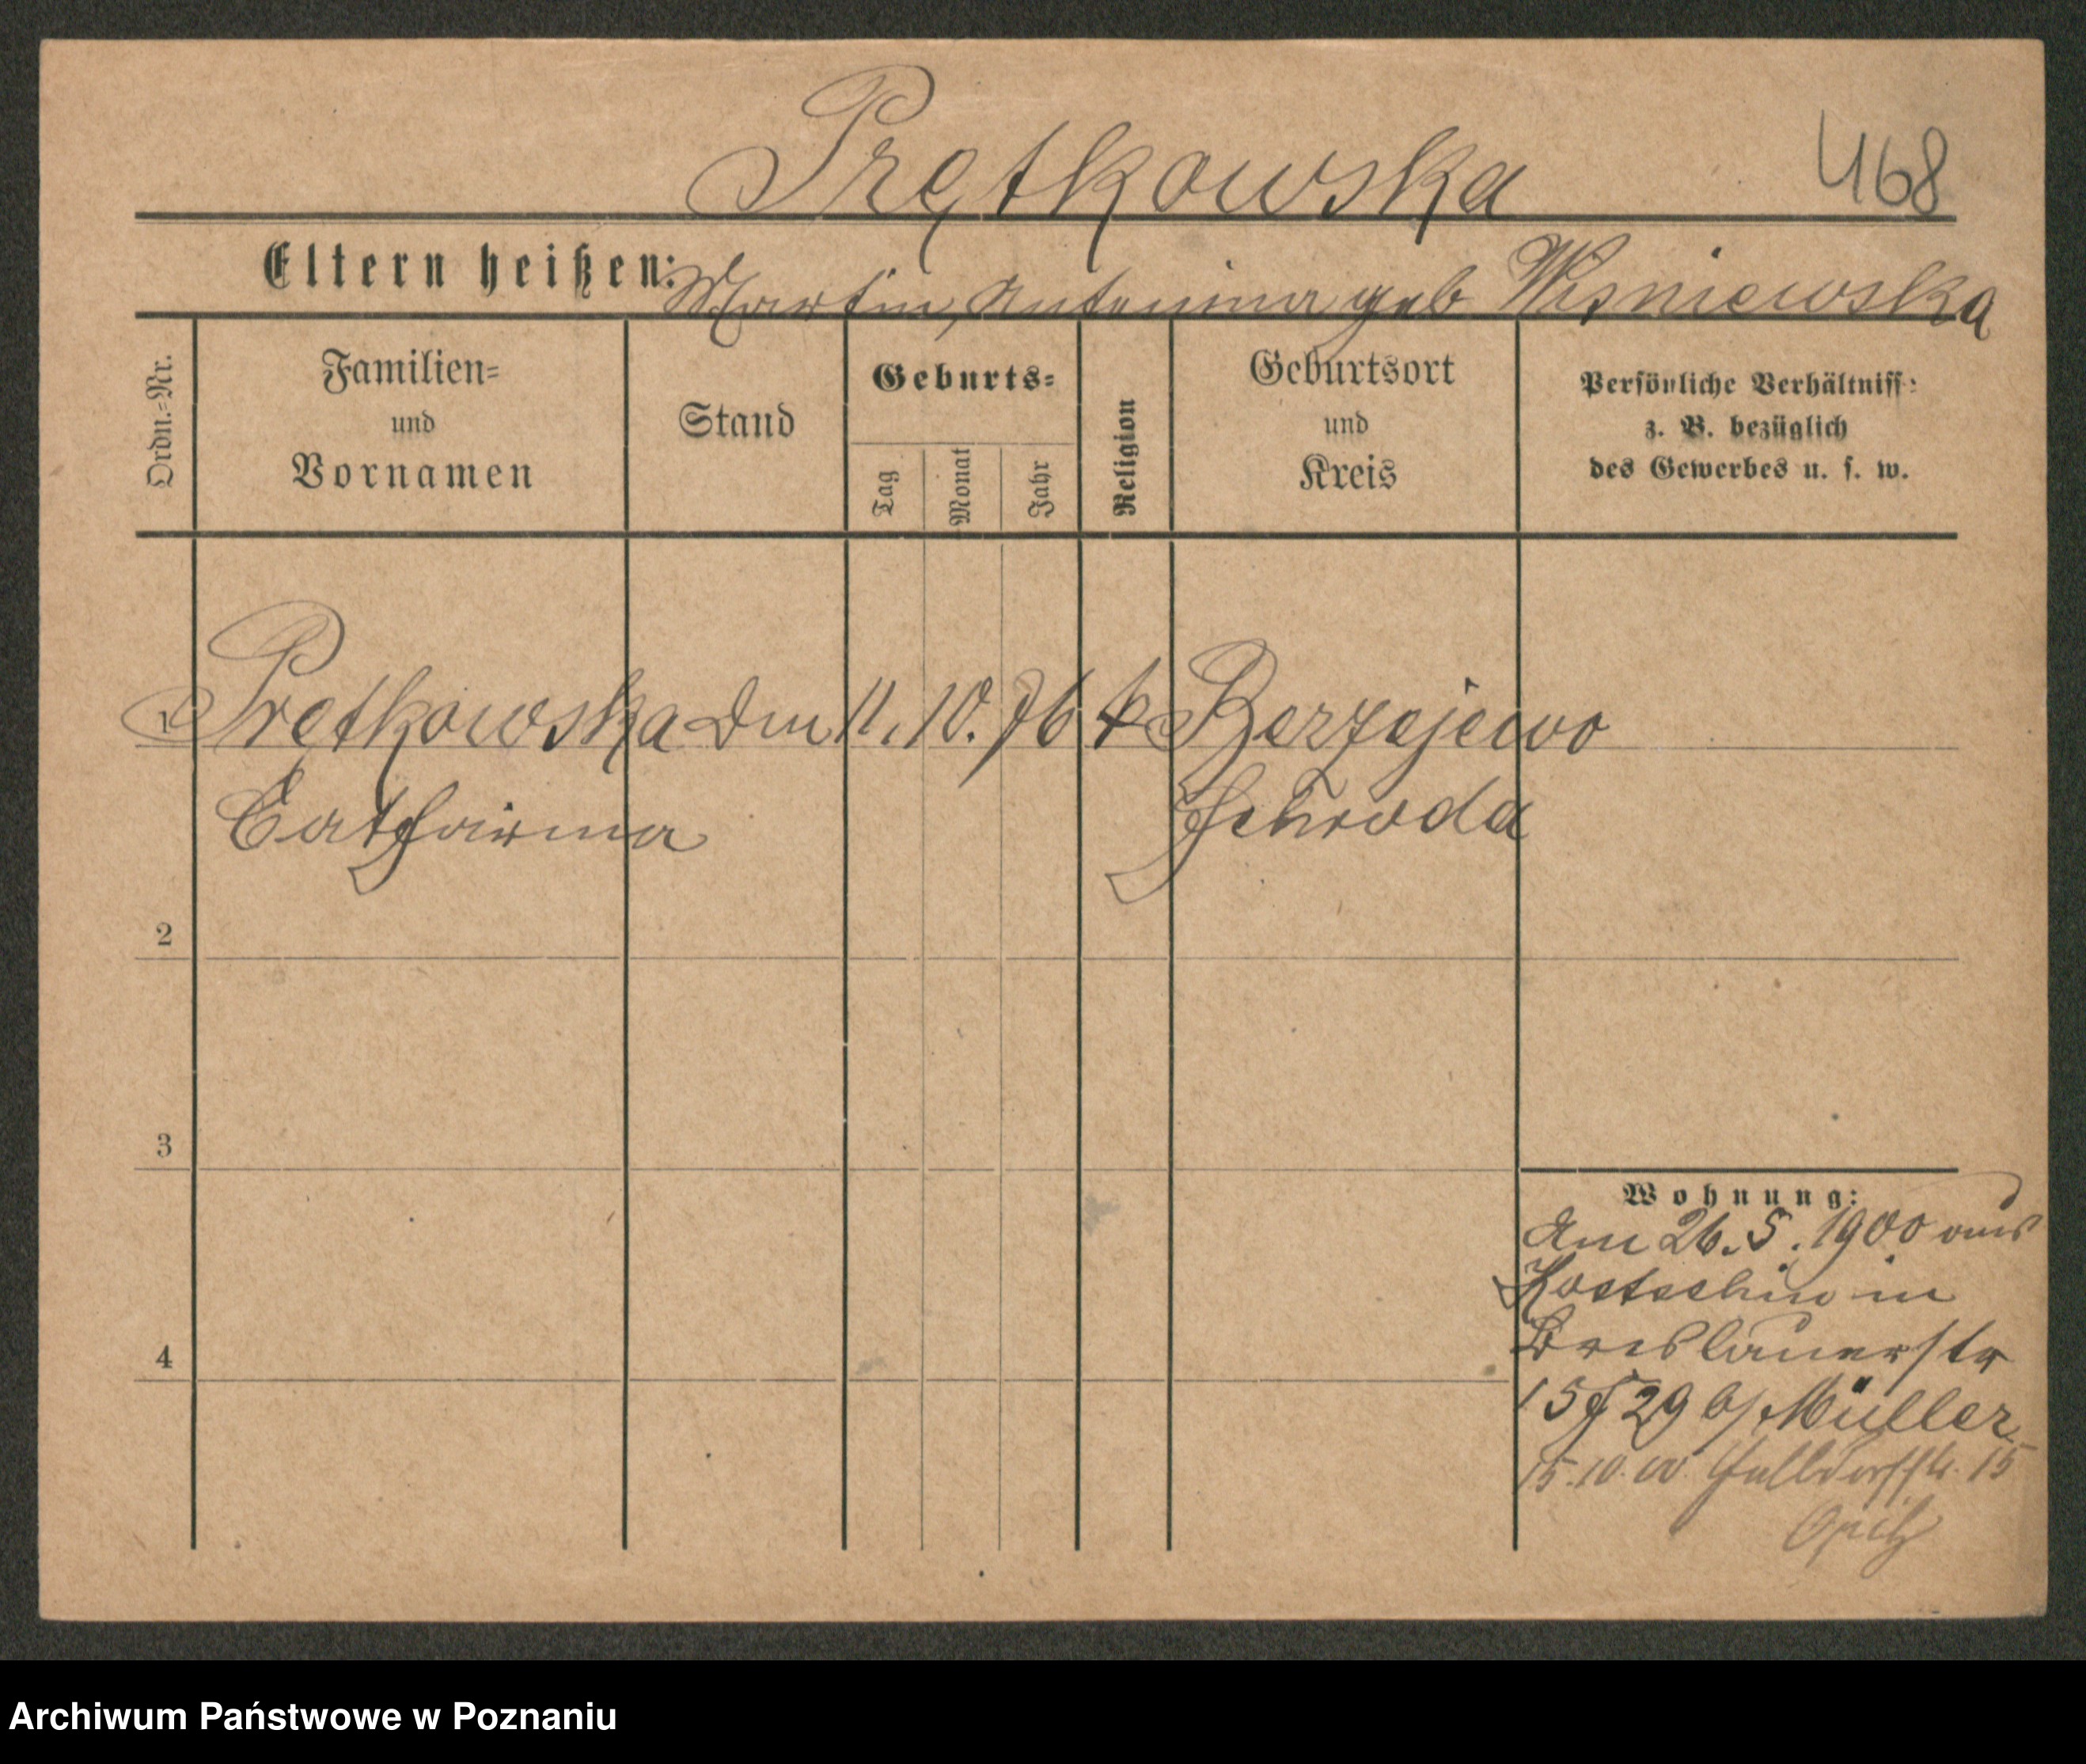 Prętkowska 468
Eltern heißen: Martin, Antonina geb Wisniewska
Ordn.=Nr.
Familien=
und
Vornamen
Stand
Geburts=
Tag
Monat
Jahr
Religion
Geburtsort
und
Kreis
Persönliche Verhältniss:
z. B. bezüglich
des Gewerbes u. s. w.
1 Prętkowska 11. 10. 76 k
Catharina Schroda
2
3
4
Wohnung:
Am 26. 5. 1900 aus
Kostschin in
Breslauerstr
15 29 b/ Müller
15. 10. 00 15
Opitz
Archiwum Państwowe w Poznaniu